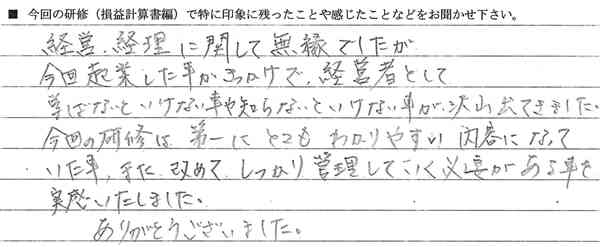 ■ 今回の研修（損益計算書編）で特に印象に残ったことや感じたことなどをお聞かせ下さい。
経営、経理に関して無縁でしたが
今回起業した事がきっかけで、経営者として
学ばないといけない事や知らないといけない事が、沢山出てきました。
今回の研修は、第一にとてもわかりやすい内容になって
いた事、また、改めて、しっかり管理していく必要がある事を
実感いたしました。
ありがとうございました。